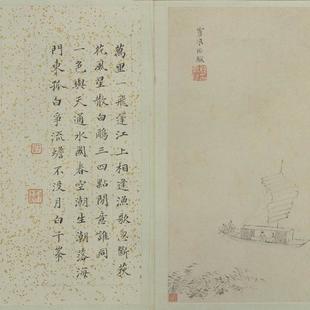 萬里一飛蓬江上相逢漁歌忽斷荻
花風星散白鷗三四點閒意誰同
一色與天通水國春空潮生潮落海
門東孤白爭流蟾不没月白千峯